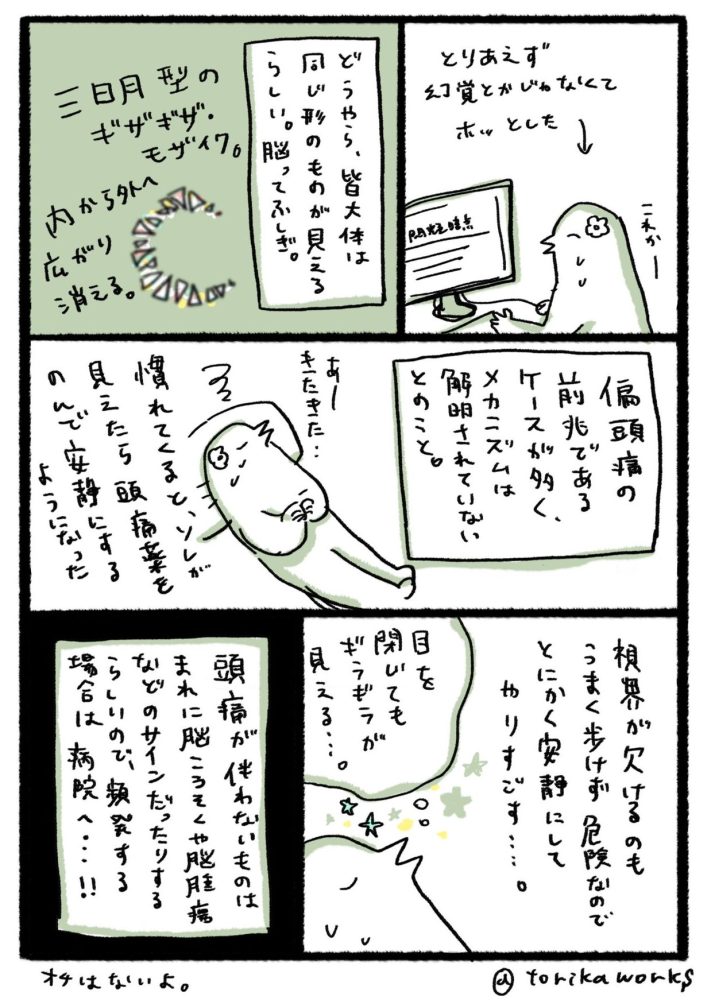 とりあえず
幻覚とかじゃなくて
ホッとした
これかー
閃輝暗点
どうやら、皆大体は
同じ形のものが見える
らしい。脳ってふしぎ。
三日月型の
ギザギザ・
モザイク。
内から外へ
広がり
消える。
偏頭痛の
前兆である
ケースが多く、
メカニズムは
解明されていない
とのこと。
あー
きたきた…
慣れてくると、ソレが
見えたら頭痛薬を
のんで安静にする
ようになった
視界が欠けるのも
うまく歩けず危険なので
とにかく安静にして
やりすごす…。
目を
閉じても
ギラギラが
見える…。
頭痛が伴わないものは
まれに脳こうそくや脳腫瘍
などのサインだったりする
らしいので、頻発する
場合は病院へ…!!
オチはないよ。
@torikaworks